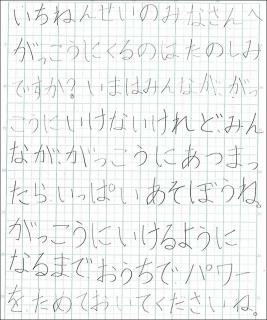 いちねんせいのみなさんへ
がっこうにくるのはたのしみ
ですか?いまはみんなが、がっ
こうにいけないけれど、みん
なが、がっこうにあつまっ
たら、いっぱいあそぼうね。
がっこうにいけるように
なるまでおうちで、パワー
を、ためておいてくださいね。